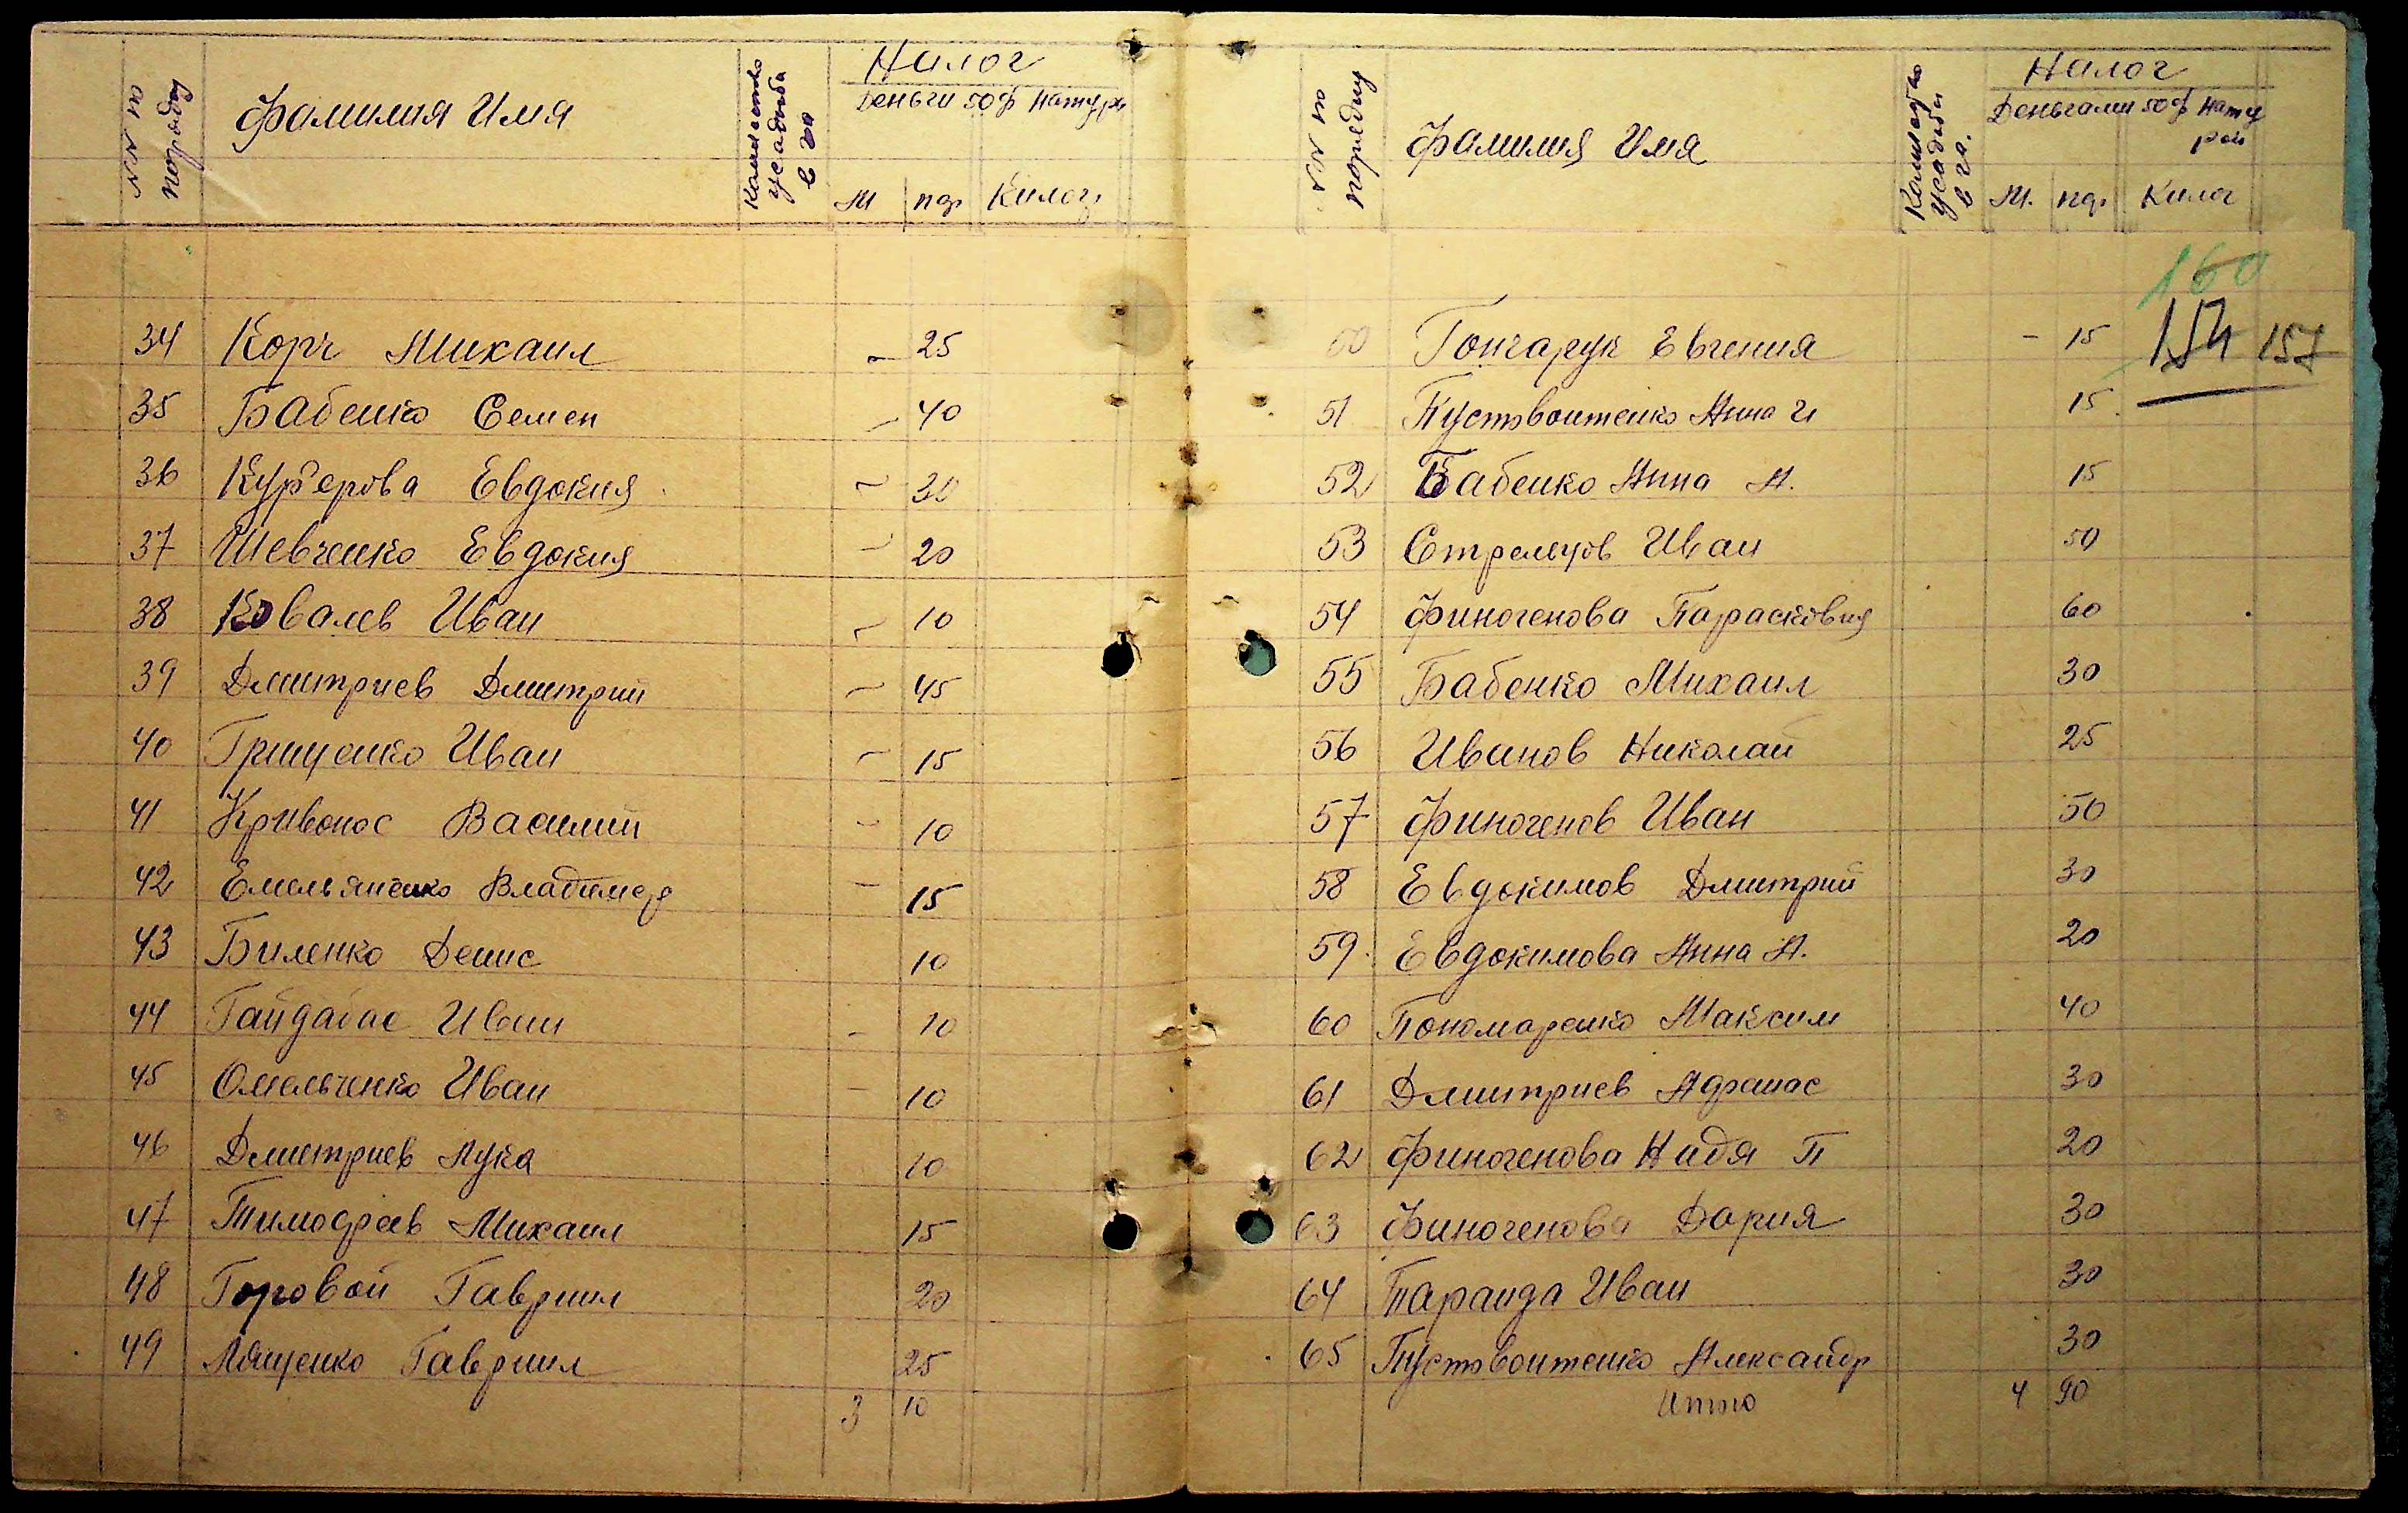 №№ по порядку
Фамилия Имя
Количество усадьба в га
Налог
Деньги 50ф Натури
М пф. Килогр
34 Корч Михаил – 25
35 Бабенко Семен – 40
36 Евдокия – 30
37 Шевченко Евдокия – 20
38 Ковалев Иван – 10
39 Дмитриев Дмитрий – 45
40 Грищенко Иван – 15
41 Кривонос Василий – 10
42 Емельяненко Владимер – 15
43 Биленко Денис 10
44 Гайдабас Иван – 10
45 Омельченко Иван – 10
46 Дмитриев Лука 10
47 Тимофеев Михаил 15
48 Горовой Гавриил 20
49 Лященко Гавриил 25
3 10
№№ по порядку
Фамилия Имя
Количество усадьби в га.
Налог
Деньгами 50ф Нату
рой
М. пф. Килог
160
50 Гончарук Евгения – 15 154 157
51 Пустовоитенко Анна И 15
52 Бабенко Анна А. 15
53 Стрельцов Иван 50
54 Финогенова Парасковия 60
55 Бабенко Михаил 30
56 Иванов Николай 25
57 Финогенов Иван 50
58 Евдокимов Дмитрий 30
59. Евдокимова Анна А. 20
60 Пономаренко Максим 40
61 Дмитриев Афанас 30
62 Финогенова Надя П 20
63 Финогенова Дария 30
64 Иван 30
65 Пустовоитенко Александр 30
Итого 4 90